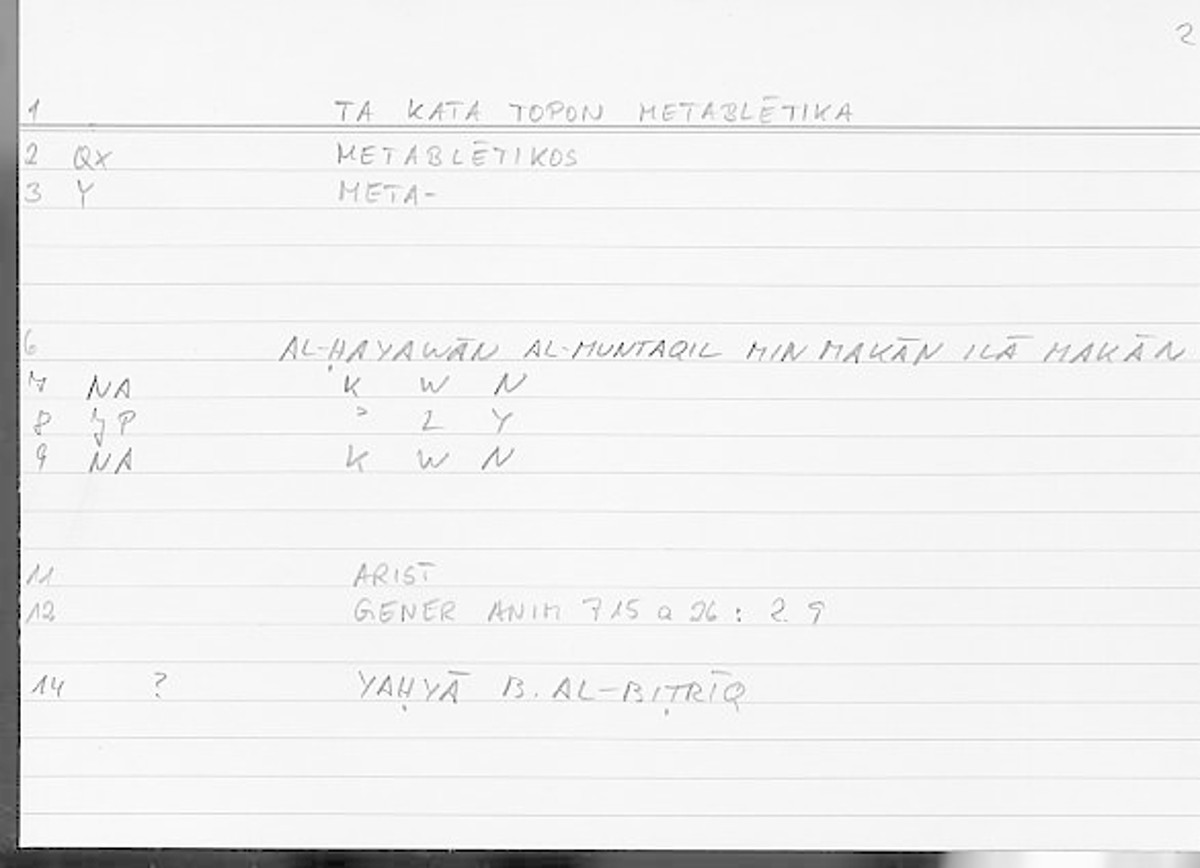 2
1 TA KATA TOPON METABLĒTIKA
2 QX METABLĒTIKOS
3 Y META-
6 AL-ḤAYAWĀN AL-MUNTAQIL MIN MAKĀN ILĀ MAKĀN
7 NA K W N
8 JP ʾ L Y
9 NA K W N
11 ARIST
12 GENER ANIM 715 a 26 : 2.9
14 ? YAḤYĀ B. AL-BIṬRĪQ